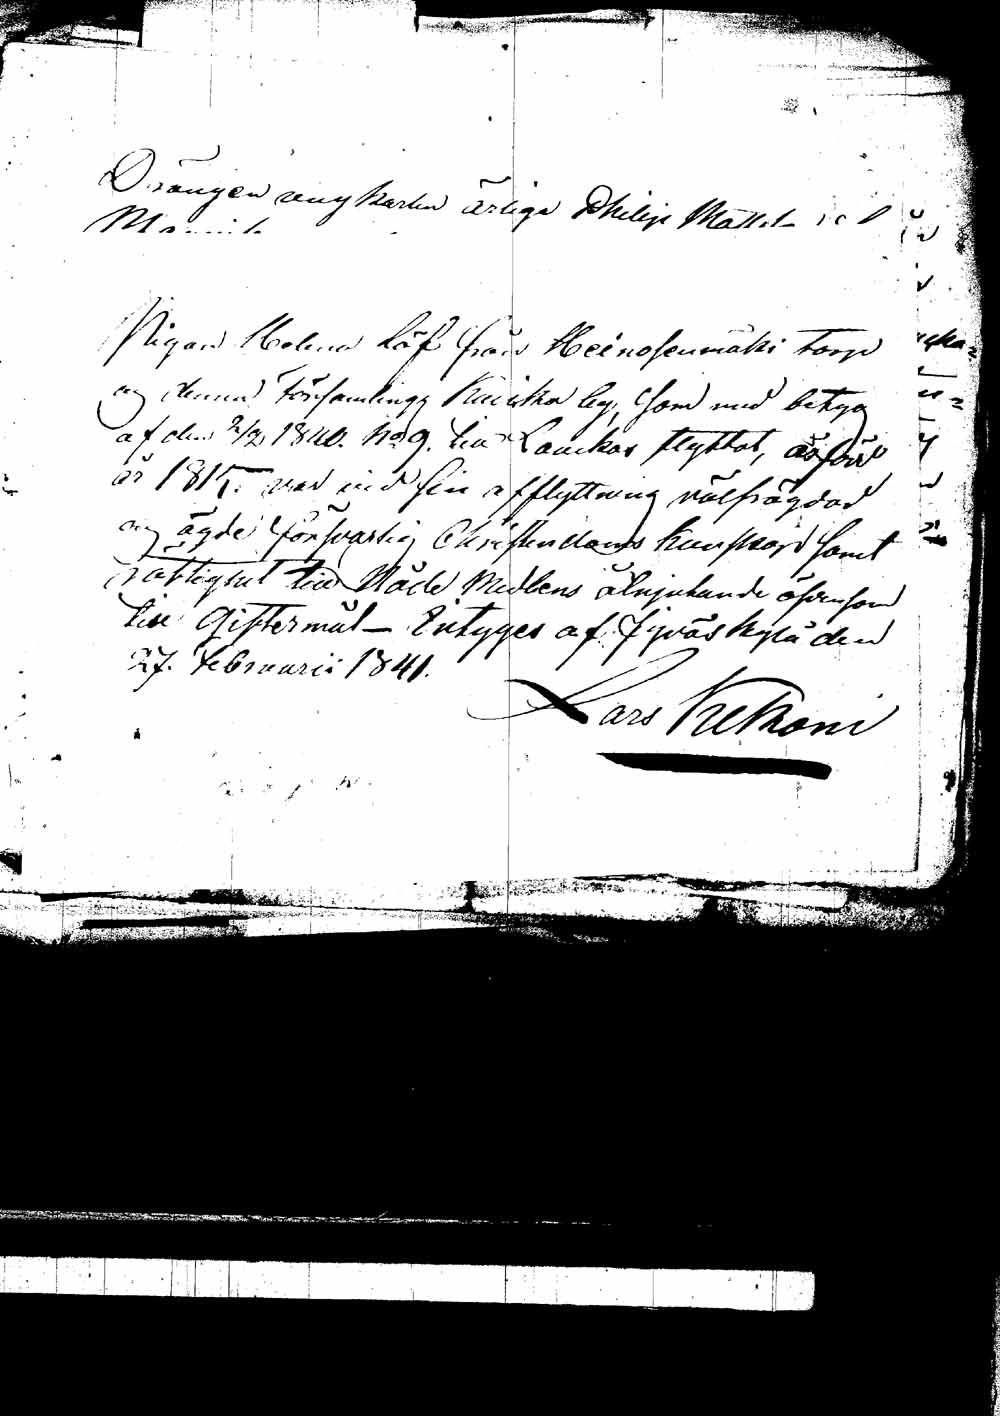 Drängen ungkarlen ärliga Philip Matts
Pigan Helena Löf från Heinosenmäki torp
og denna Församlings by, som med betyg
af den 2/2 1840. No 9. till Laukas flyttat, är född
år 1815. var vid sin afflyttning välfrägdad
og ägde försvarlig Christendoms kunskap samt
rättighet till Nåde Medlens åtnjutande äfvensom
till Giftermål – Intygges af Jyväskylä den
27. Februarii 1841.
Lars Kekoni